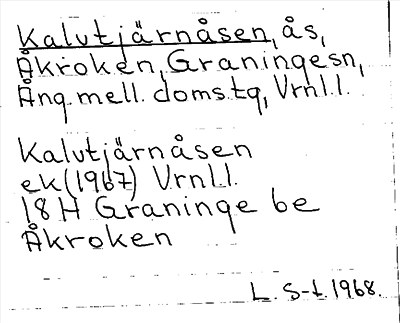 Kalvtjärnåsen, ås,
Åkroken, Graningesn,
Ång. mell. domstg, Vrnl.l.
Kalvtjärnåsen
ek(1967) Vrnl.l.
18H Graninge 6e
Åkroken
L. S-t. 1968.